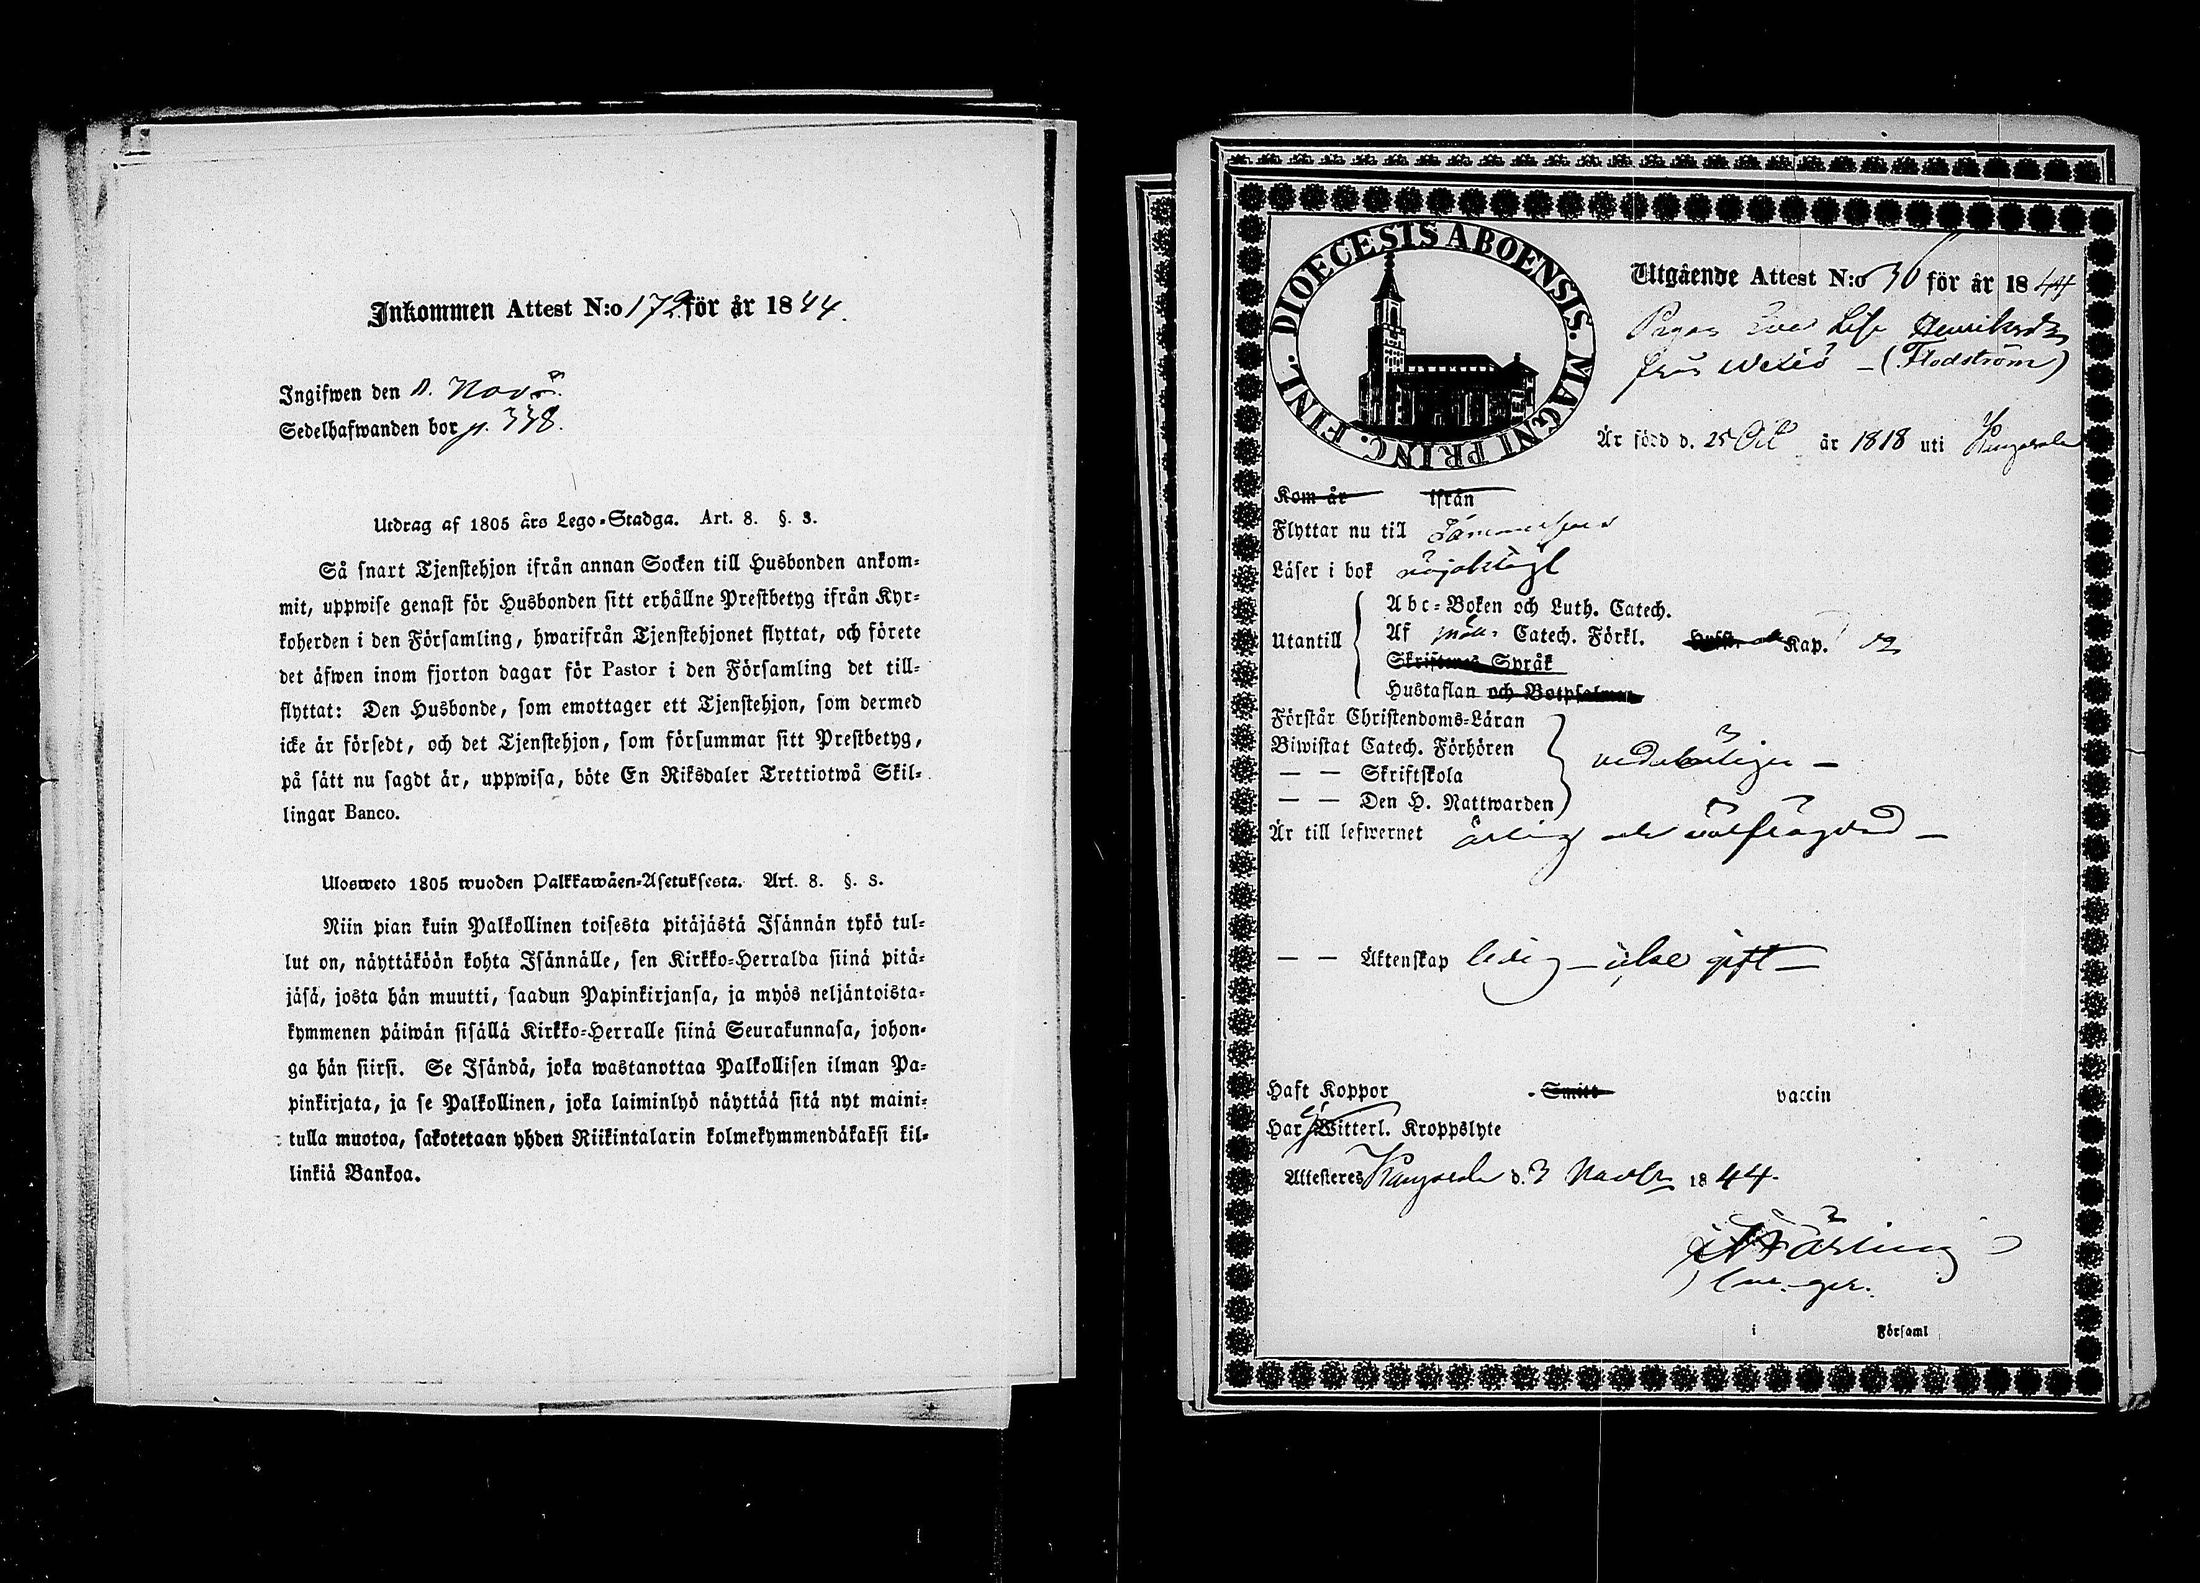 Inkommen Attest N:o 172 för år 1844.
Ingifwen den Nov
Sedelhafwanden bor p. 338.
Utdrag af 1805 års Lego-Stadga. Art. 8. §. 3.
Så snart Tjenstehjon ifrån annan Socken till Husbonden ankom-
mit, uppwise genast för Husbonden sitt erhållne Prestbetyg ifrån Kyr-
koherden i den Församling, hwarifrån Tjenstehjonet flyttat, och förete
det äfwen inom fjorton dagar för Pastor i den Församling det till-
flyttat: Den Husbonde, som emottager ett Tjenstehjon, som dermed
icke är försedt, och det Tjenstehjon, som försummar sitt Prestbetyg,
på sätt nu sagdt är, uppwisa, böte En Riksdaler Trettiotwå Skil-
lingar Banco.
Ulosweto 1805 wuoden Palkkawäen-Asetuksesta. Art. 8. §. 3.
Niin pian kuin Palkollinen toisesta pitäjästä Isännän tykö tul-
lut on, näyttäköön kohta Isännälle, sen Kirkko-Herralda siinä pitä-
jäsä, josta hän muutti, saadun Papinkirjansa, ja myös neljäntoista-
kymmenen päiwän sisällä Kirkko-Herralle siinä Seurakunnasa, johon-
ga hän siirsi. Se Isändä, joka wastanottaa Palkollisen ilman Pa-
pinkirjata, ja se Palkollinen, joka laiminlyö näyttää sitä nyt maini-
tulla muotoa, sakotetaan yhden Riikintalarin kolmekymmendäkaksi kil-
linkiä Bankoa.
DIOECESIS ABOENSIS. MAGNI PRINC. FINL.
Utgående Attest N:o 36 för år 1844
Pigan Eva Lisa Henriksdr
från (Flodström)
År född d. 25 Oct år 1818 uti Kangasala
Kom år ifrån
Flyttar nu till Tammerfors
Läser i bok nöjaktigt
Utantill
Abc-Boken och Luth. Catech.
Af Catech. Förkl. Kap. 12
Skriftenes Språk
Hustaflan och Botpsalmer
Förstår Christendoms-Läran
Biwistat Catech. Förhören
— — Skriftskola
— — Den H. Nattwarden
vederbörligen —
Är till lefwernet ärlig och välfrägdad —
— — Äktenskap ledig — icke gift —
Haft Koppor Smitt vaccin
Har ej Witterl. Kroppslyte
Attesteres Kangasala d. 3 Novbr 1844.
i Församl